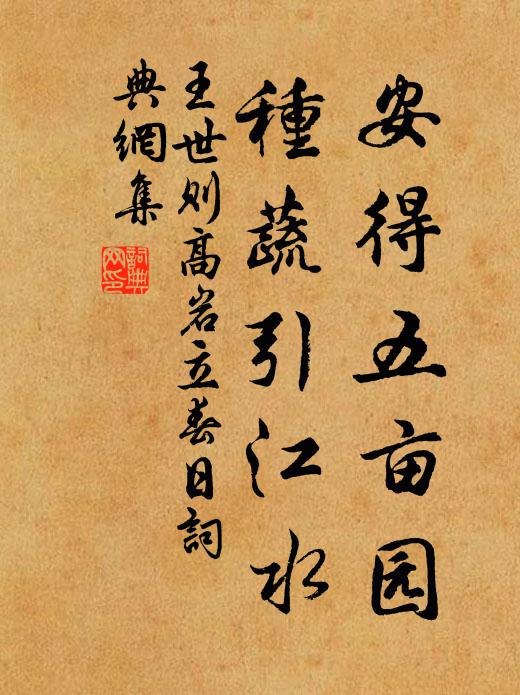 安得五亩园
種蔬引江水
王世则高岩立春日詞
典網集
詞典網印